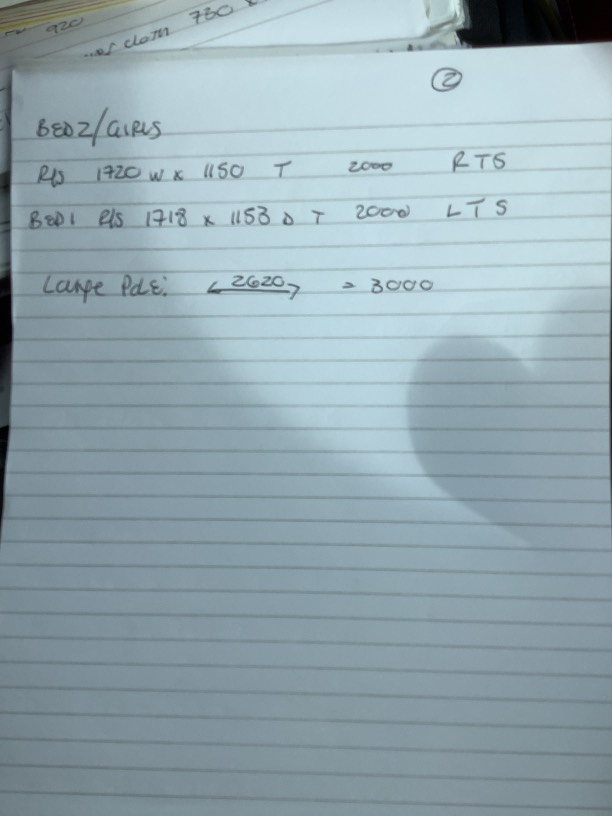 920
cloth 730
2
BED2/GIRLS
R/S 1720 W x 1150 T 2000 RTS
BED1 R/S 1718 x 1153 D T 2000 LTS
Large Pole: 2620 = 3000